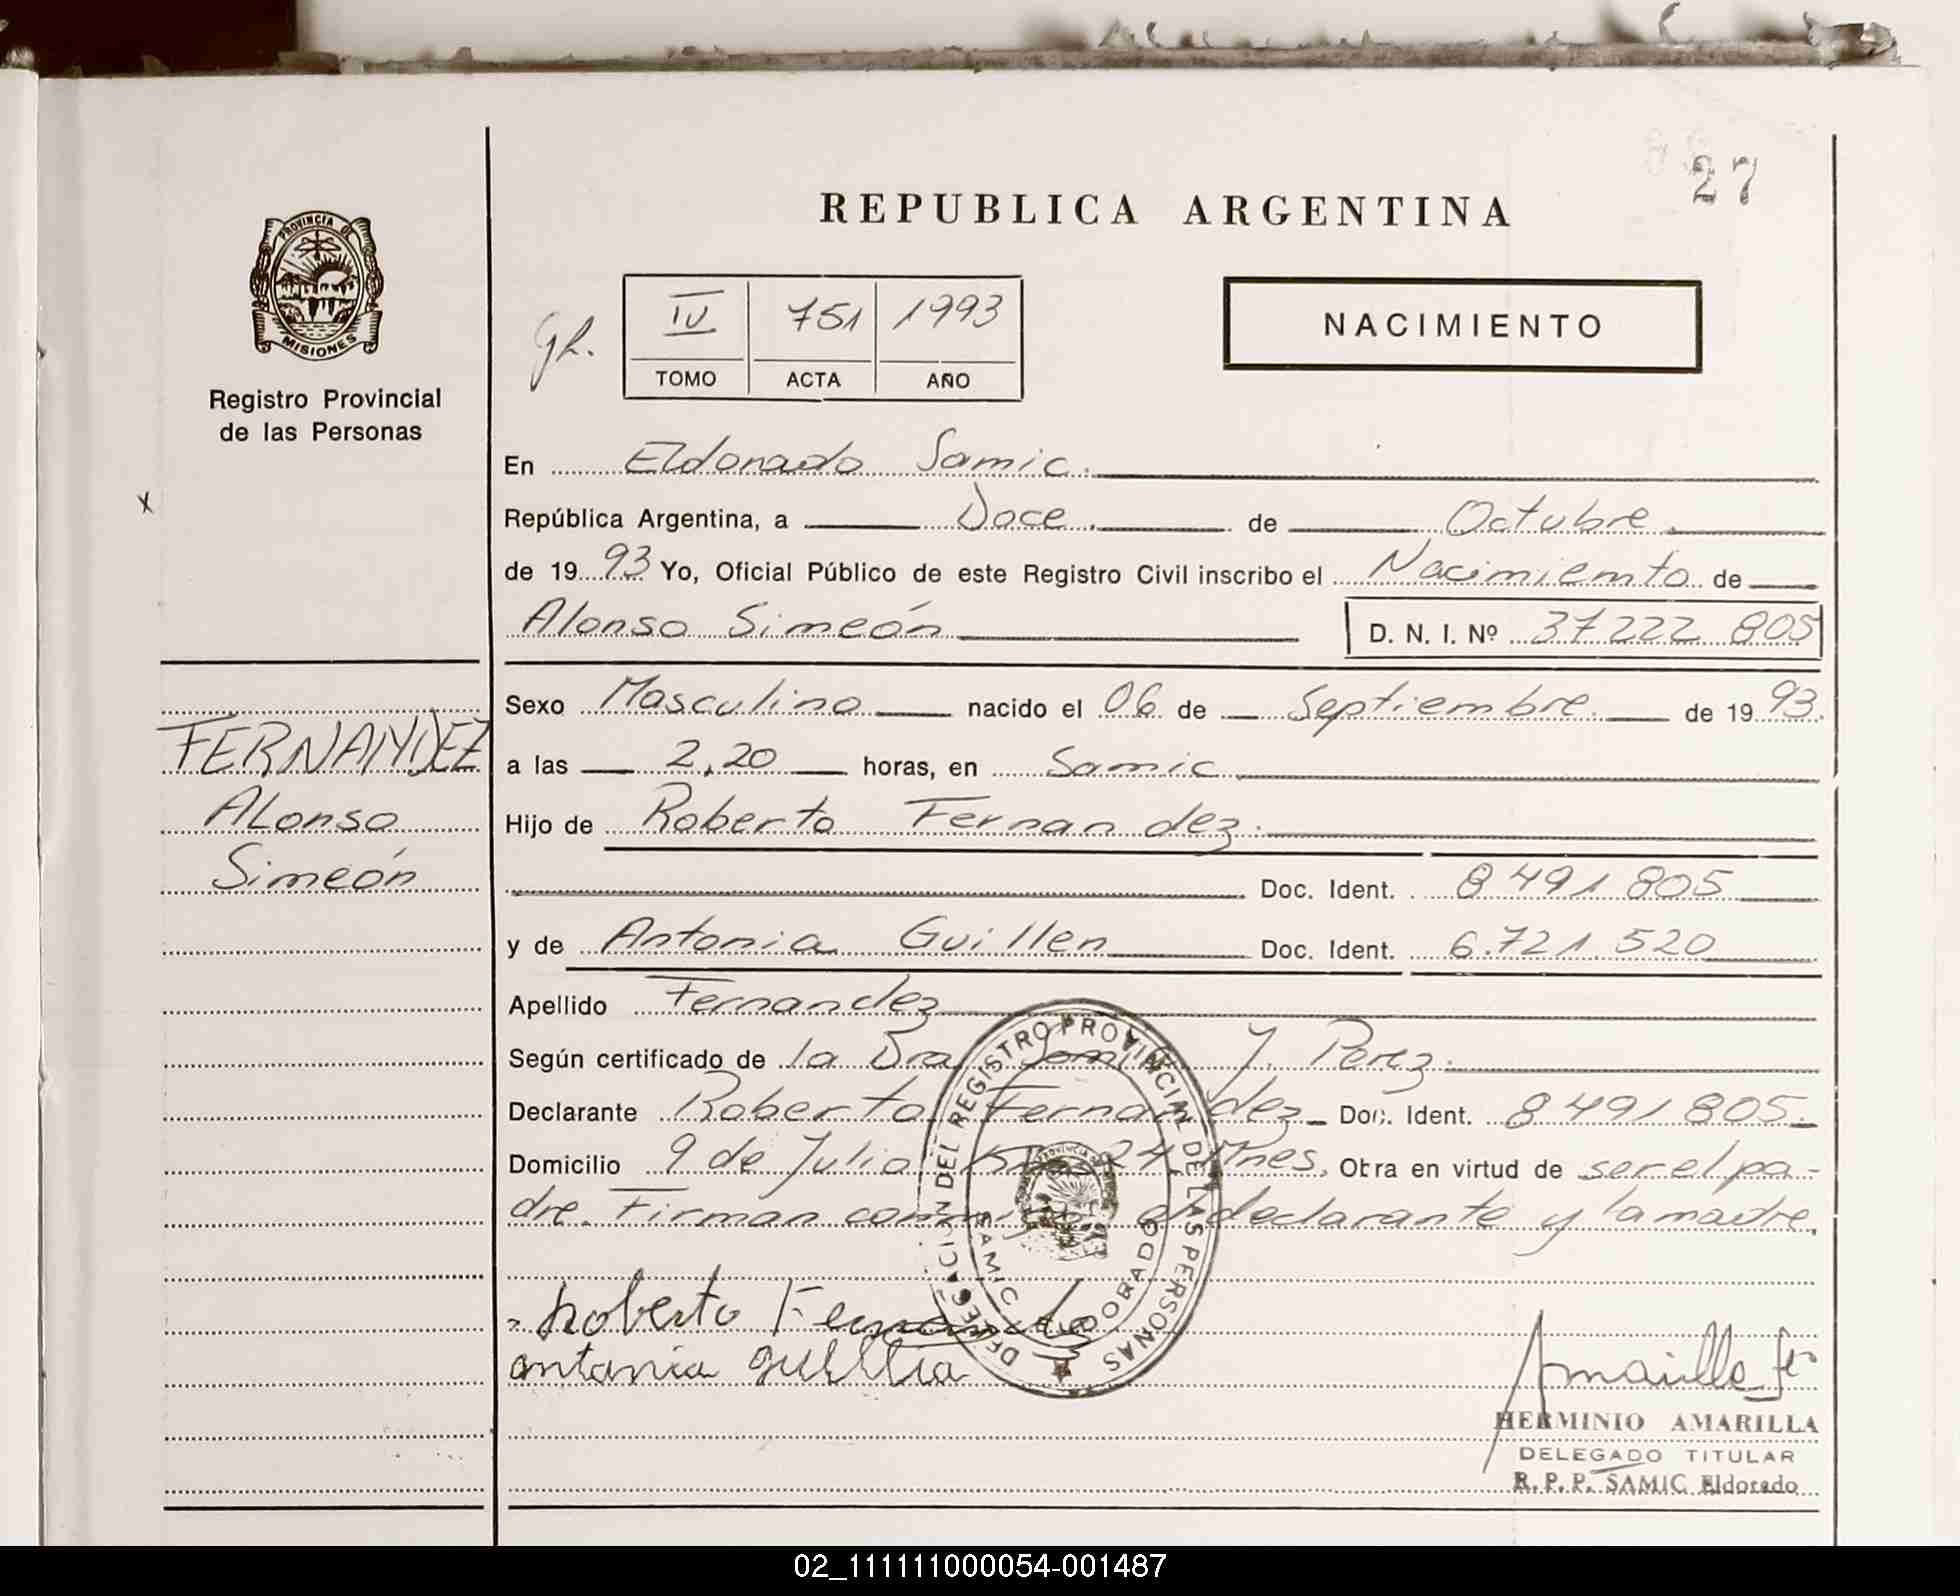 27
REPUBLICA ARGENTINA
PROVINCIA DE
MISIONES
Registro Provincial
de las Personas
IV 751 1993
TOMO ACTA AÑO
NACIMIENTO
En Eldorado Samic.
República Argentina, a Doce. de Octubre
de 1993 Yo, Oficial Público de este Registro Civil inscribo el Nacimiento de
Alonso Simeón D. N. I. Nº 37 222 805
x
Sexo Masculino nacido el 06 de Septiembre de 1993.
FERNANDEZ
a las 2,20 horas, en Samic
Alonso
Hijo de Roberto Fernandez.
Simeón
Doc. Ident. 8 491 805
y de Antonia Guillen Doc. Ident. 6.721 520
Apellido Fernandez
Según certificado de la Dra Y. Perez.
Declarante Roberto Fernandez Doc. Ident. 8 491 805.
Domicilio 9 de Julio Km 24. Mnes. Obra en virtud de ser el pa-
dre. Firman conmigo el declarante y la madre.
DELEGACION DEL REGISTRO PROVINCIAL DE LAS PERSONAS
SAMIC ELDORADO
Roberto Fernandez
antania
Amarilla
HERMINIO AMARILLA
DELEGADO TITULAR
R. P. P. SAMIC Eldorado
02_111111000054-001487